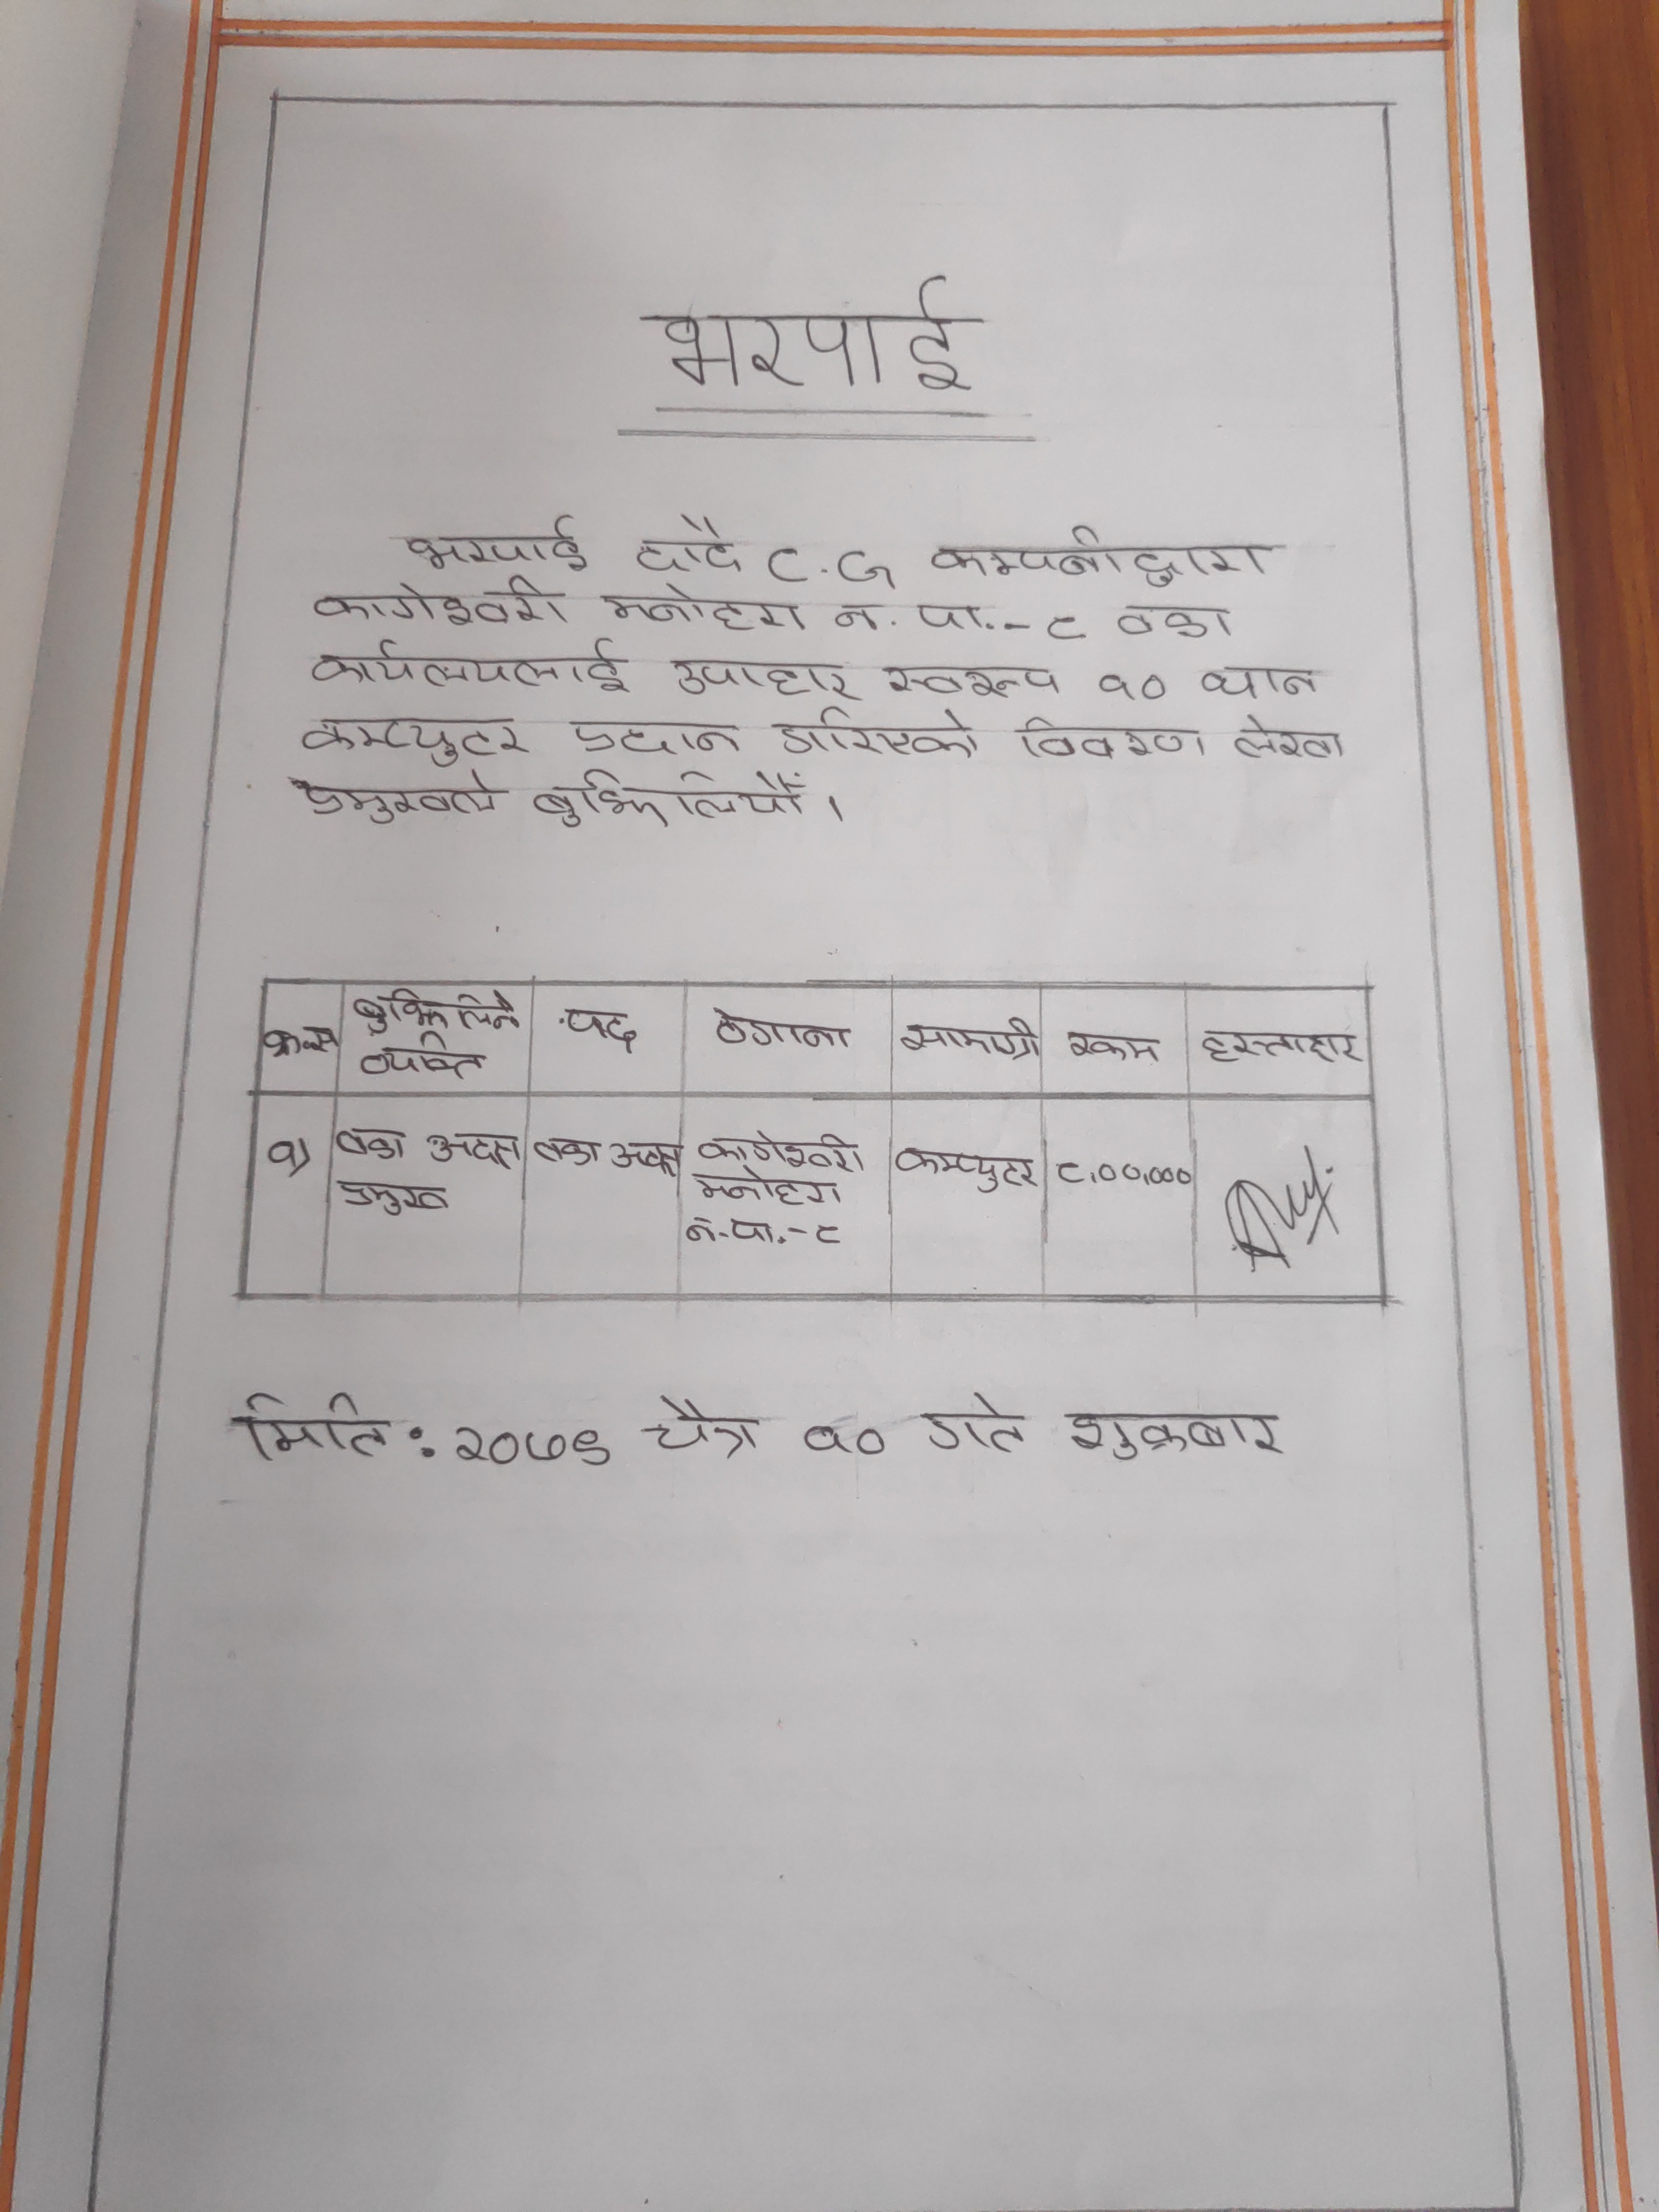 भरपाई
भरपाई दादै C.G कम्पनीद्वारा
कागेश्वरी मनोहरा न.पा.-८ वडा
कार्यलयलाई उपाहार स्वरूप १० थान
कम्प्युटर प्रदान गरिएको विवरण लेखा
प्रमुखले बुझिलियौं।
क्र.स बुझिलिने व्यक्ति पद ठेगाना सामाग्री रकम हस्ताक्षर
१) वडा प्रमुख वडा कागेश्वरी मनोहरा न.पा.-८ कम्प्युटर ८,००,०००
मिति: २०७९ चैत्र १० गते शुक्रबार